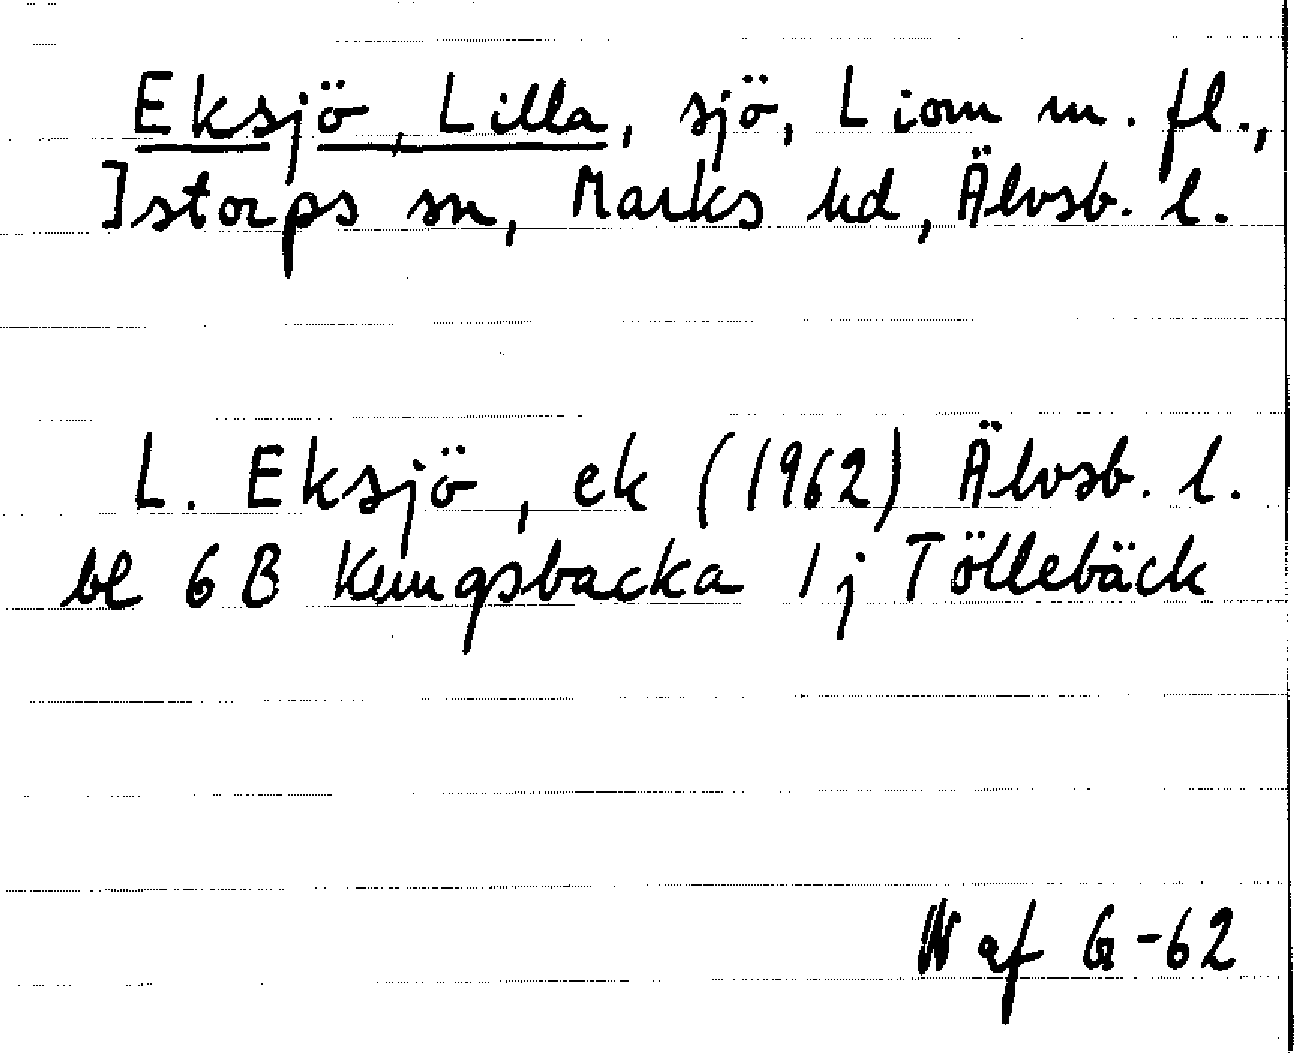 Eksjö, Lilla, sjö, Liom m. fl.,
Istorps sn, Marks hd, Älvsb. l.
L. Eksjö, ek (1962) Älvsb. l.
bl 6 B Kungsbacka 1 j Töllebäck
N af G-62